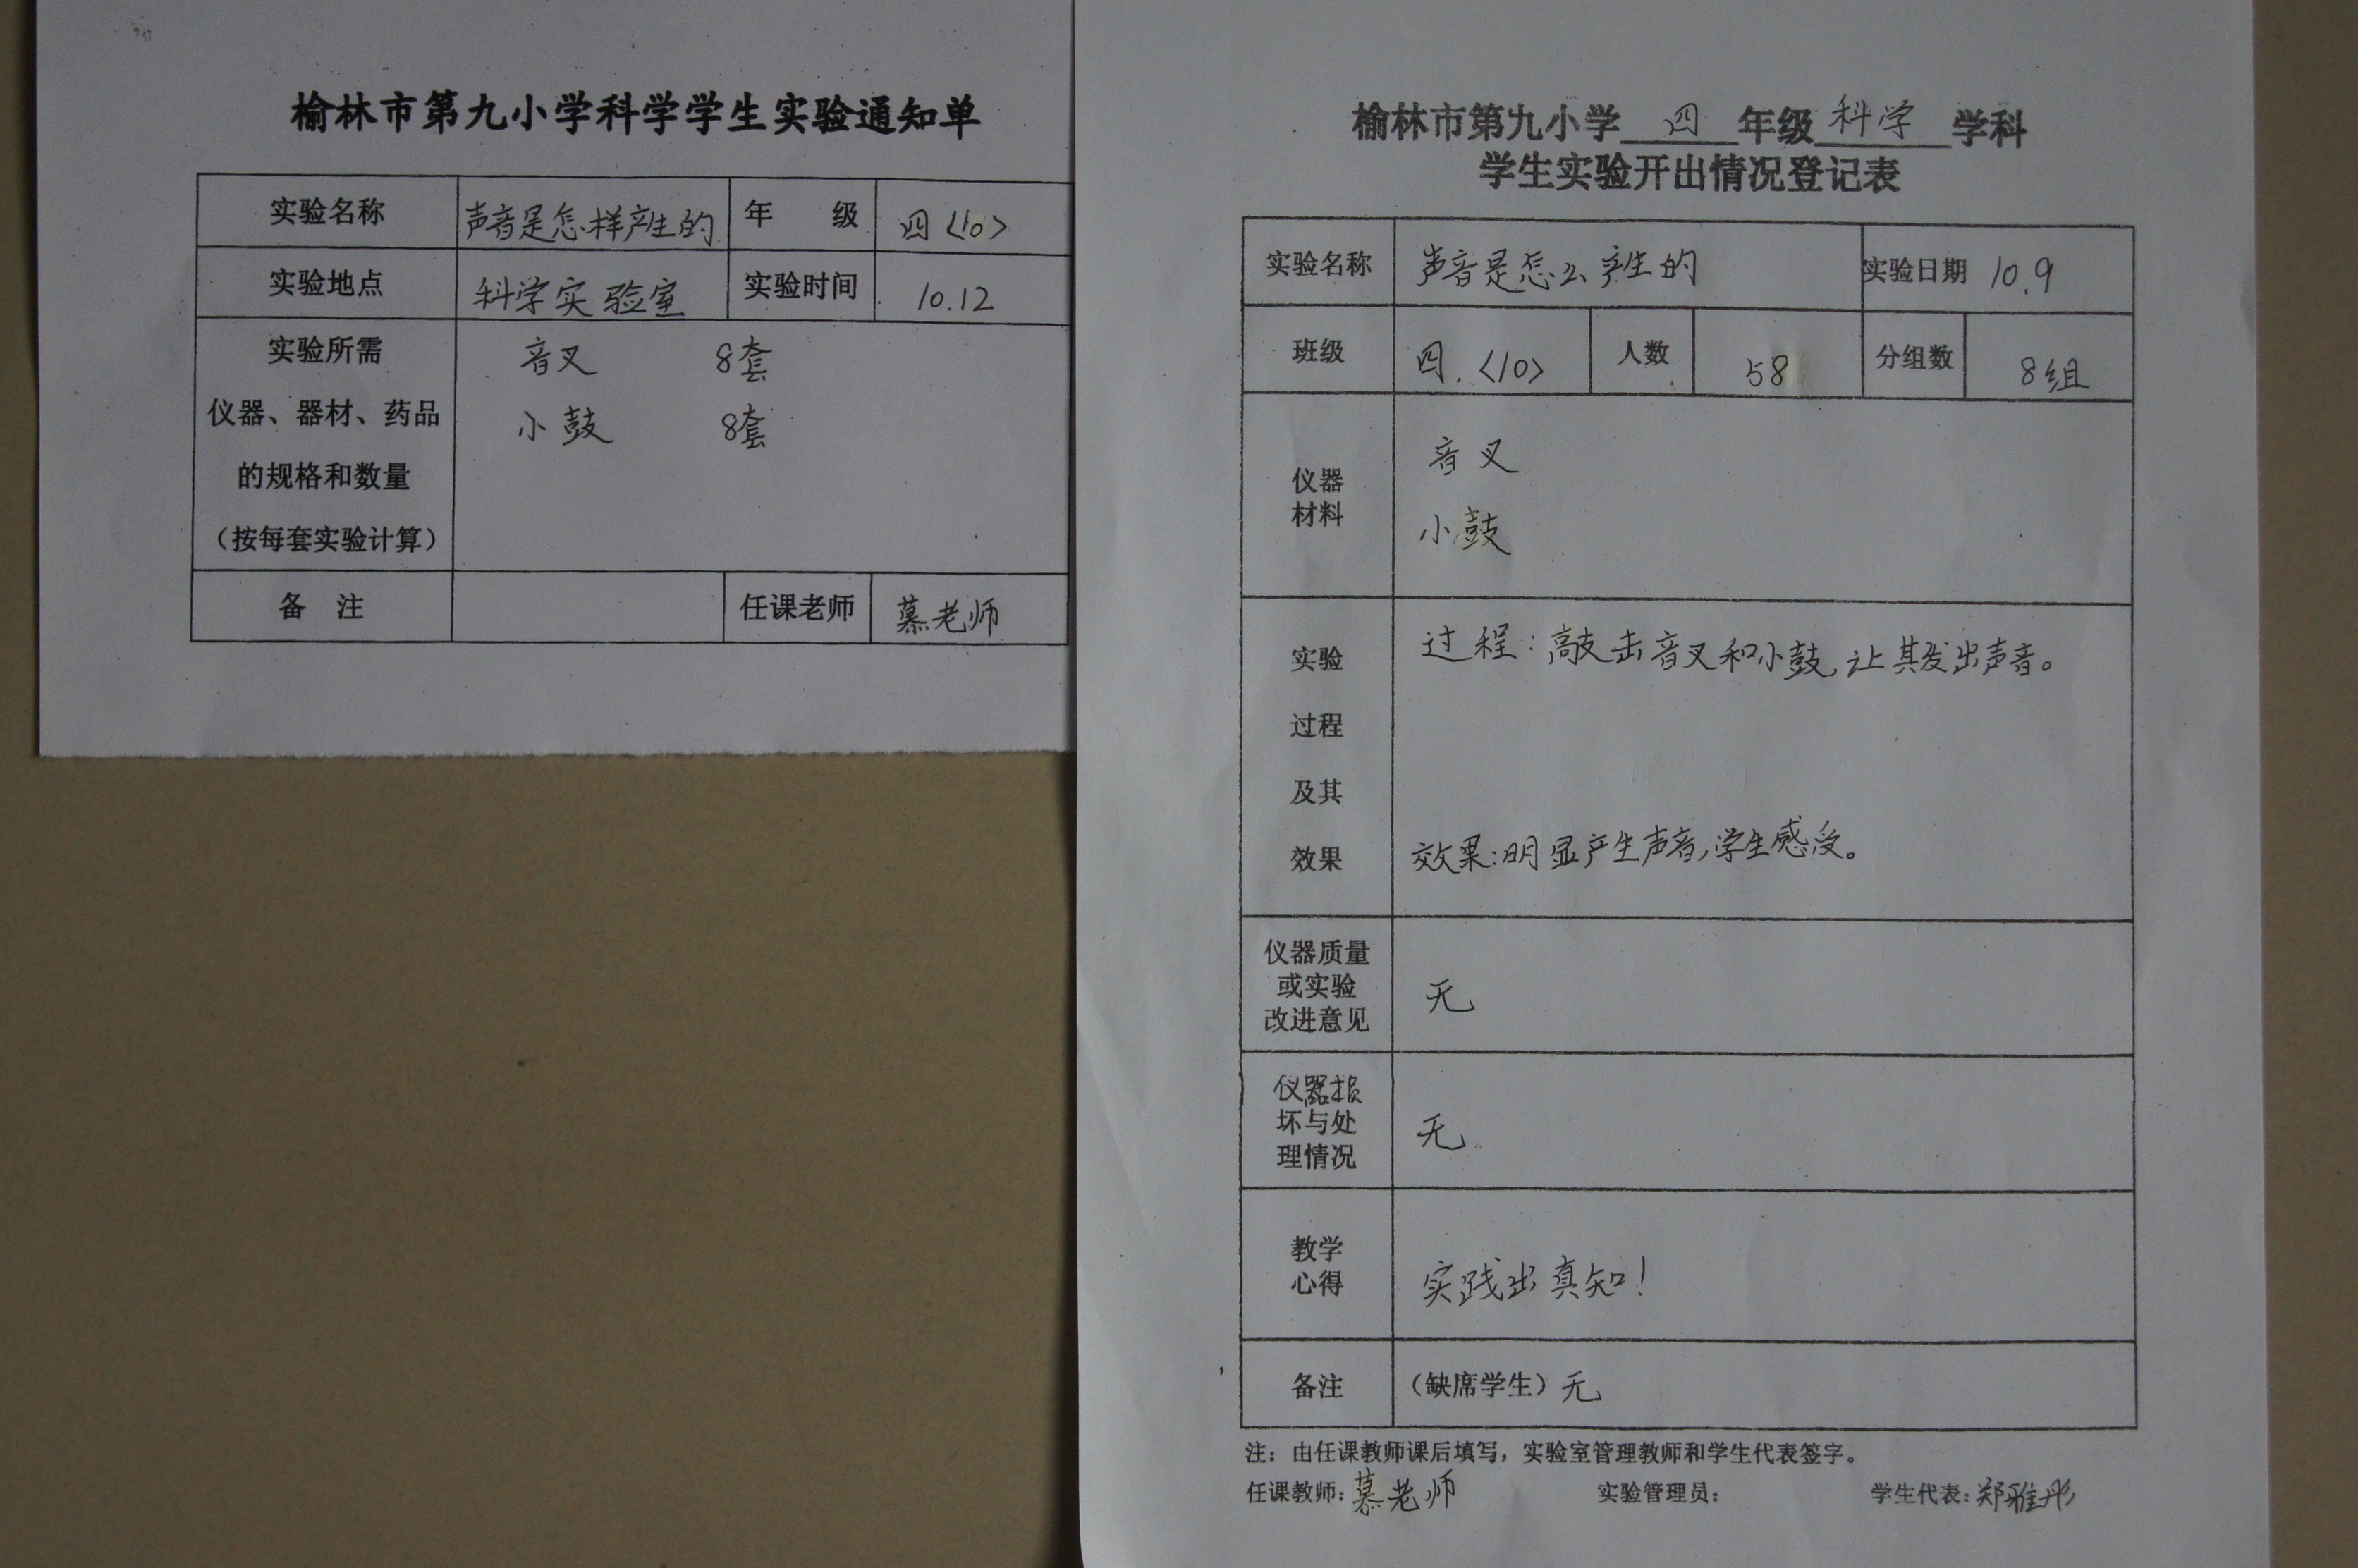 榆林市第九小学科学学生实验通知单
实验名称 声音是怎样产生的 年 级 四〈10〉
实验地点 科学实验室 实验时间 10.12
实验所需
仪器、器材、药品
的规格和数量
（按每套实验计算）
音叉 8套
小鼓 8套
备 注 任课老师 慕老师
榆林市第九小学 四 年级 科学 学科
学生实验开出情况登记表
实验名称 声音是怎么产生的 实验日期 10.9
班级 四.〈10〉 人数 58 分组数 8组
仪器
材料
音叉
小鼓
实验
过程
及其
效果
过程：敲击音叉和小鼓,让其发出声音。
效果:明显产生声音,学生感受。
仪器质量
或实验
改进意见
无
仪器损
坏与处
理情况
无
教学
心得
实践出真知！
备注 （缺席学生）无
注：由任课教师课后填写，实验室管理教师和学生代表签字。
任课教师：慕老师 实验管理员： 学生代表：郑雅彤